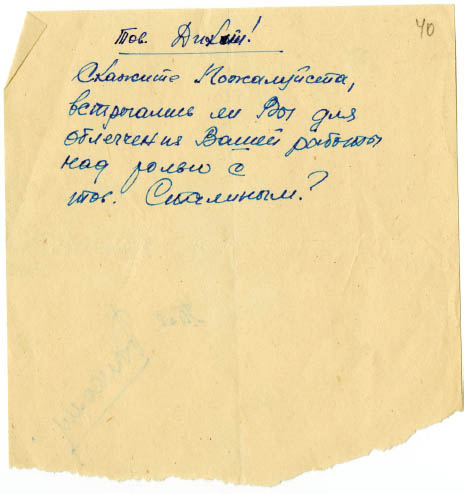 40
Тов. Дикий!
Скажите Пожалуйста,
встречались ли Вы для
облегчения Вашей работы
над ролью с
тов. Сталиным?